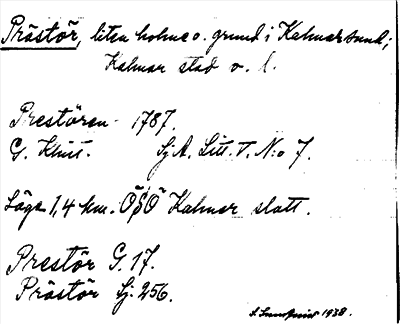 Prästör, liten holme o. grund i Kalmarsund;
Kalmar stad o. l.
Prestören 1787.
G. Klint. Sj. A. Litt. V. N:o 7.
Läge 1,4 km. ÖSÖ Kalmar slott.
Prestör G. 17.
Prästör Sj. 256.
1938.